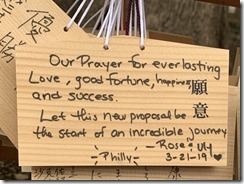 Our Prayer for everlasting
Love, good fortune, happiness
and success.
願意
Let this new proposal be
the start of an incredible journey
- Rose
- Philly - 3-21-19 ♥